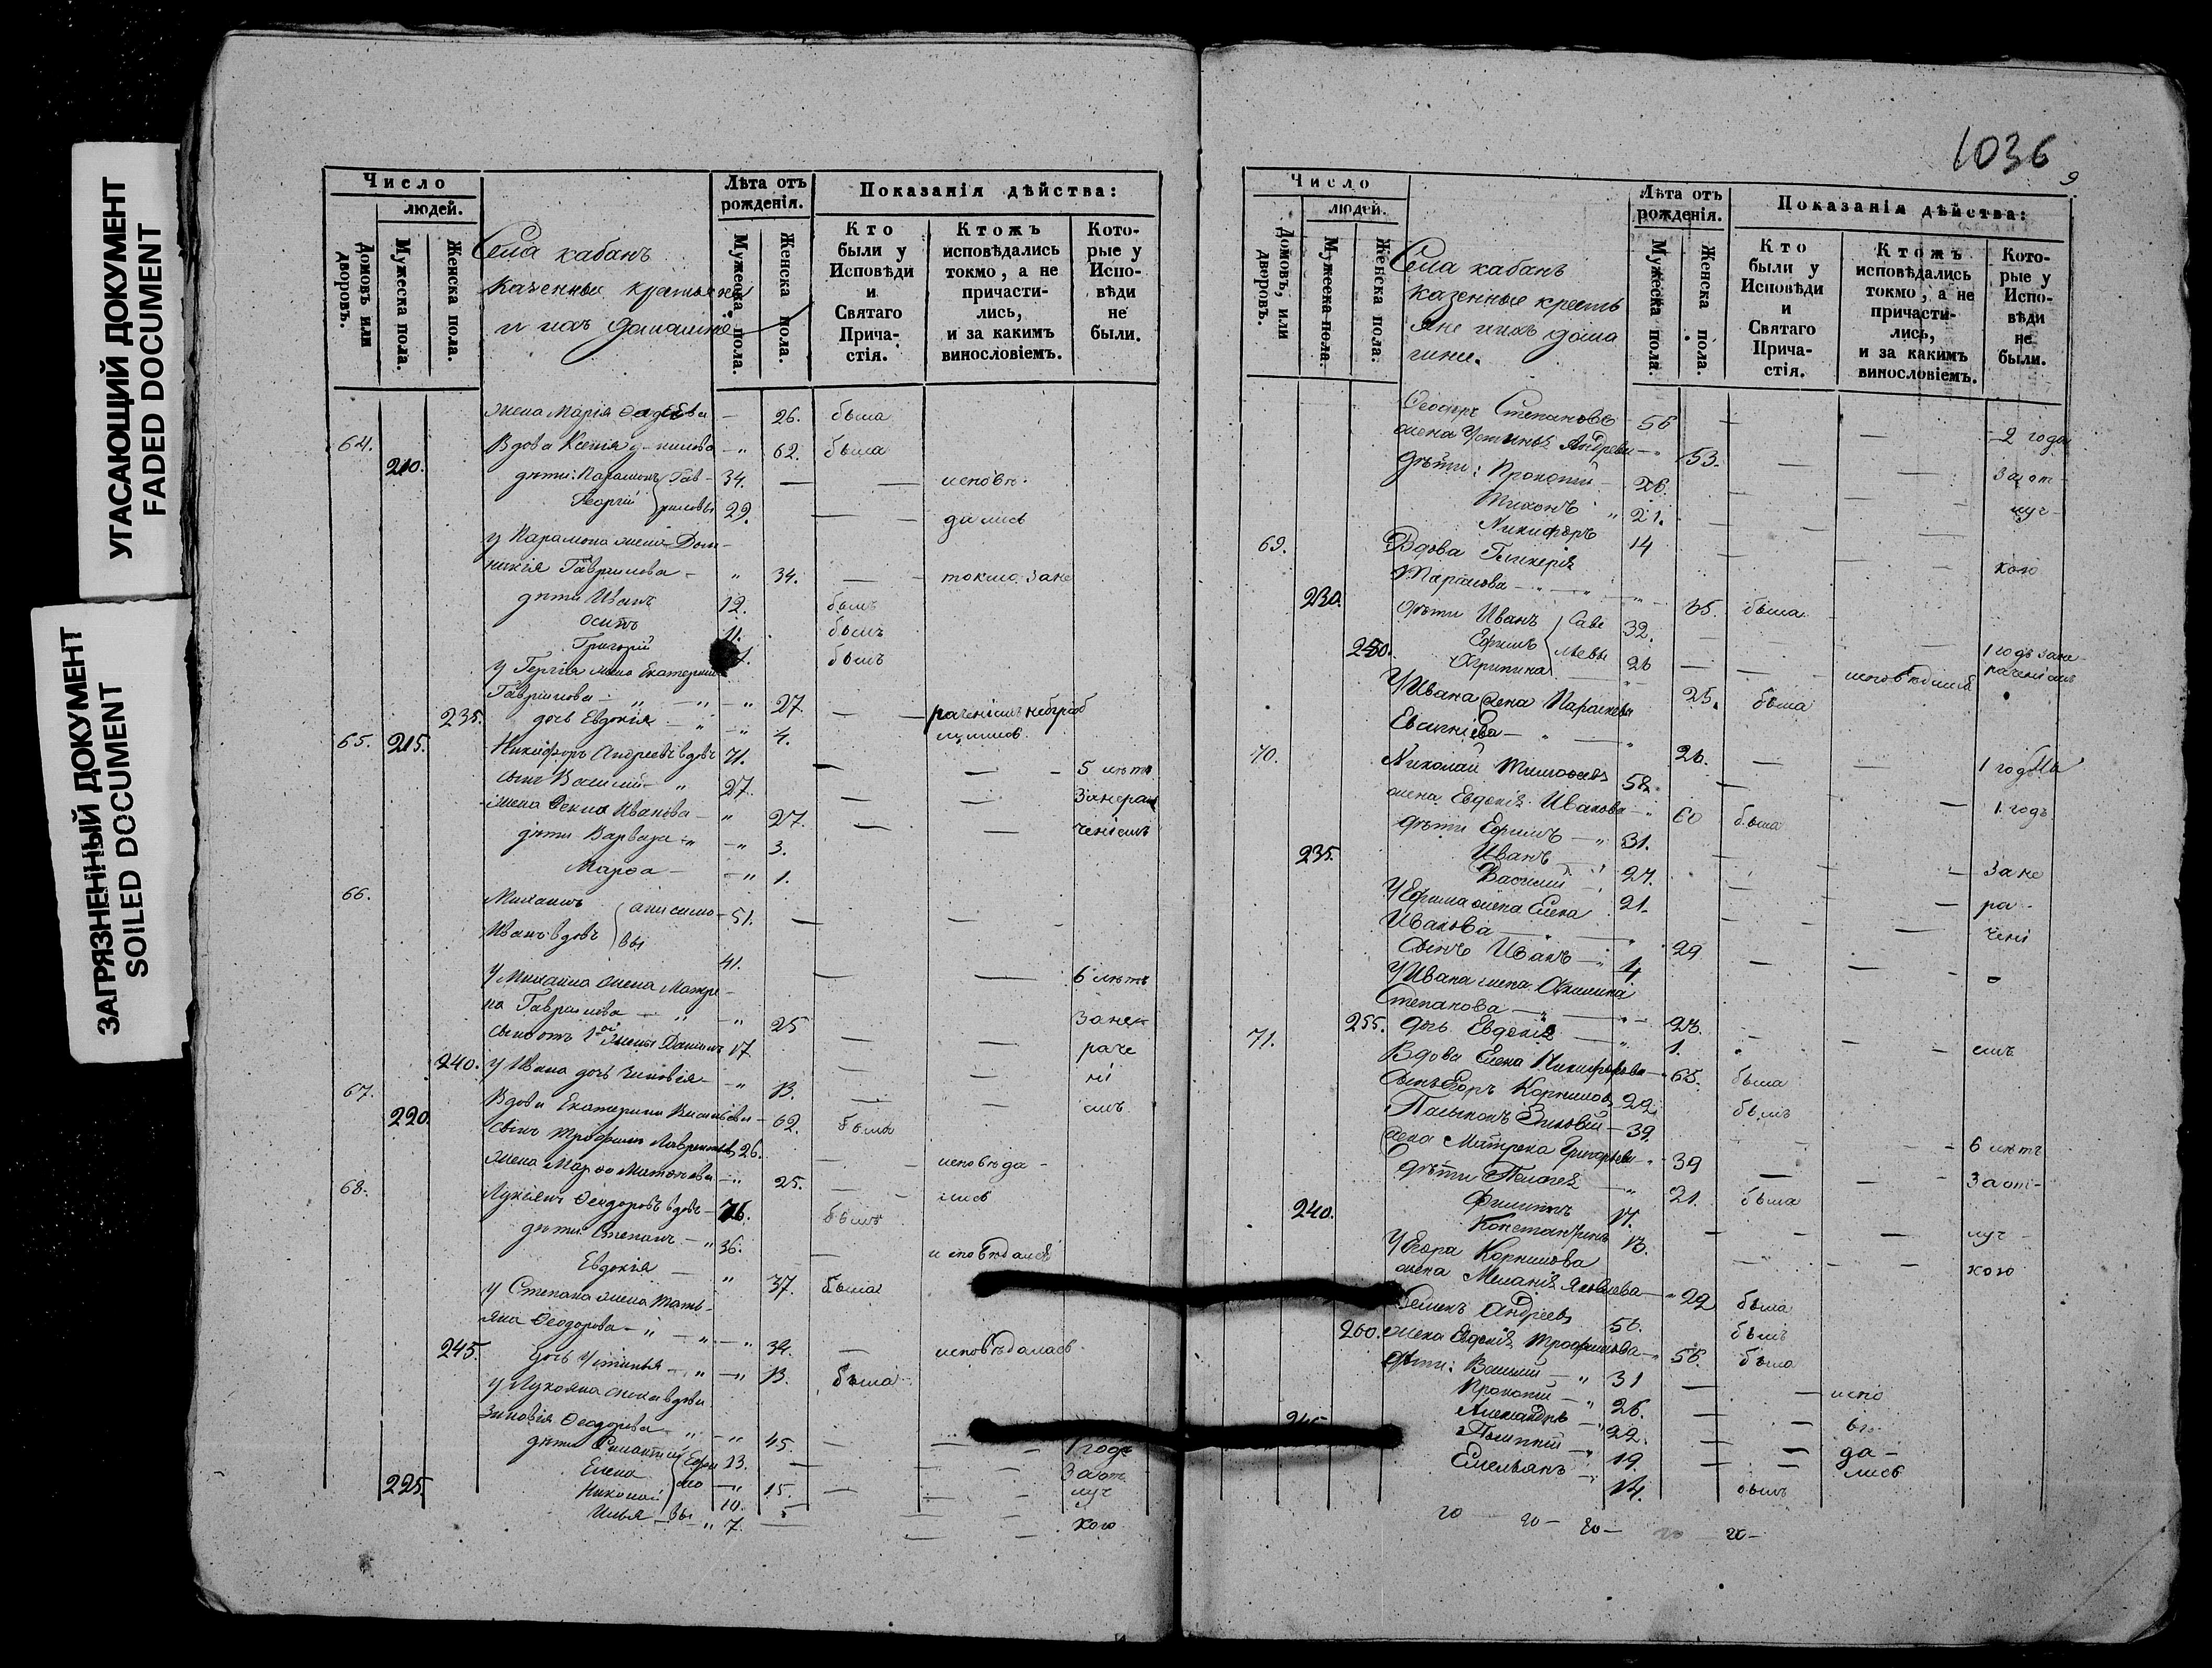 УГАСАЮЩИЙ ДОКУМЕНТ
FADED DOCUMENT
ЗАГРЯЗНЕННЫЙ ДОКУМЕНТ
SOILED DOCUMENT
Число
людей.
Домовъ или дворовъ.
Мужеска пола.
Женска пола.
Села кабанъ
казенные крестьяне
и ихъ домашніе
Лѣта отъ рожденія.
Мужеска пола.
Женска пола.
Показанія дѣйства:
Кто были у Исповѣди и Святаго Причастія.
Ктожъ исповѣдались токмо, а не причастились, и за какимъ винословіемъ.
Которые у Исповѣди не были.
жена Марія 26. была
64. Вдова Ксенія 62. была
210. дѣти: Парамонъ Гав- 34. исповѣ-
Георгій риловы 29. дались
у Парамона жена Дом-
никія Гаврилова 34. токмо зане
дѣти Иванъ 12. былъ
Осипъ 11. былъ
Григорій былъ
у Георгія жена Екатерина
Гаврилова 27 раченіемъ
235. дочь Евдокія 4.
65. 215. Никифоръ Андреевъ вдовъ 71. 5 лѣтъ
сынъ Василій 27. Занера
жена Фекла Иванова 27. ченіемъ
дѣти Варвара 3.
Марѳа 1.
66. Михаилъ анисимо- 51.
Иванъ вдовъ вы 41.
У Михаила жена Матре- 6 лѣтъ
на Гаврилова 25 Зане
сынъ отъ 1ой жены Даніилъ 17 раче
240. у Ивана дочь Зиновія 13. ні
67. Вдова Екатерина Васильева 62. была емъ
220. сынъ Трофимъ Лаврентьевъ 26.
жена Марѳа 25. исповѣда-
68. Лукіянъ Ѳеодоровъ вдовъ 76. былъ лись
дѣти Степанъ 36. исповѣдался
Евдокія 37. была
у Степана жена Тать-
яна Ѳеодорова 34. исповѣдалась
245. дочь Устинья 13. была
у Лукояна
Зиновія Ѳеодорова 45. 1 годъ
дѣти Ефи 13. За от
Елена мо 15. луч
225. Николай вы 10. кою
Илья 7.
1036
9
Число
людей.
Домовъ, или дворовъ.
Мужеска пола.
Женска пола.
Села кабанъ
казенные кресть
яне ихъ дома
шніе.
Лѣта отъ рожденія.
Мужеска пола.
Женска пола.
Показанія дѣйства:
Кто были у Исповѣди и Святаго Причастія.
Ктожъ исповѣдались токмо, а не причастились, и за какимъ винословіемъ.
Которые у Исповѣди не были.
Ѳеодоръ Степановъ 56 2 года
жена Устинья Андреева 53. За от-
дѣти: Прокопій 26. луч-
Тихонъ 21.
Никифоръ 14 кою
69. Вдова Гликерія
Тарасова 65 была
230. дѣти Иванъ Саве 32. 1 годъ зане
Ефимъ льевы 26 раченіемъ
250. Агрипина 25. была
У Ивана жена Параскева
Евсигніева 26.
70. Николай Тимоѳеевъ 58. 1 годъ
жена Евдокія Иванова 60 была 1 годъ
дѣти Ефимъ 31.
235. Иванъ 27. Зане
Василій 21. ра-
У Ефима жена Елена
Иванова 29 чені
сынъ Иванъ 4
У Ивана жена Акилина
Степанова 23.
255. дочь Евдокія 1. емъ
71. Вдова Елена Никифорова 65. была
Сынъ Егоръ Корниловъ 22. былъ
Зиновій 39.
жена Матрена Григорьева 39 6 лѣтъ
дѣти Пелагея 21. была За от-
240. Филиппъ 17.
Константинъ 13. луч
У Егора Корнилова кою
жена Меланія Яковлева 22 была
Семенъ Андреевъ 56. былъ
260. жена Евдокія Трофимова 56. была
дѣти: Василій 31 испо
Прокопій 26. вѣ
245 Александръ 22. да-
19. лись
Емельянъ 14. былъ
20 20 20 20 20